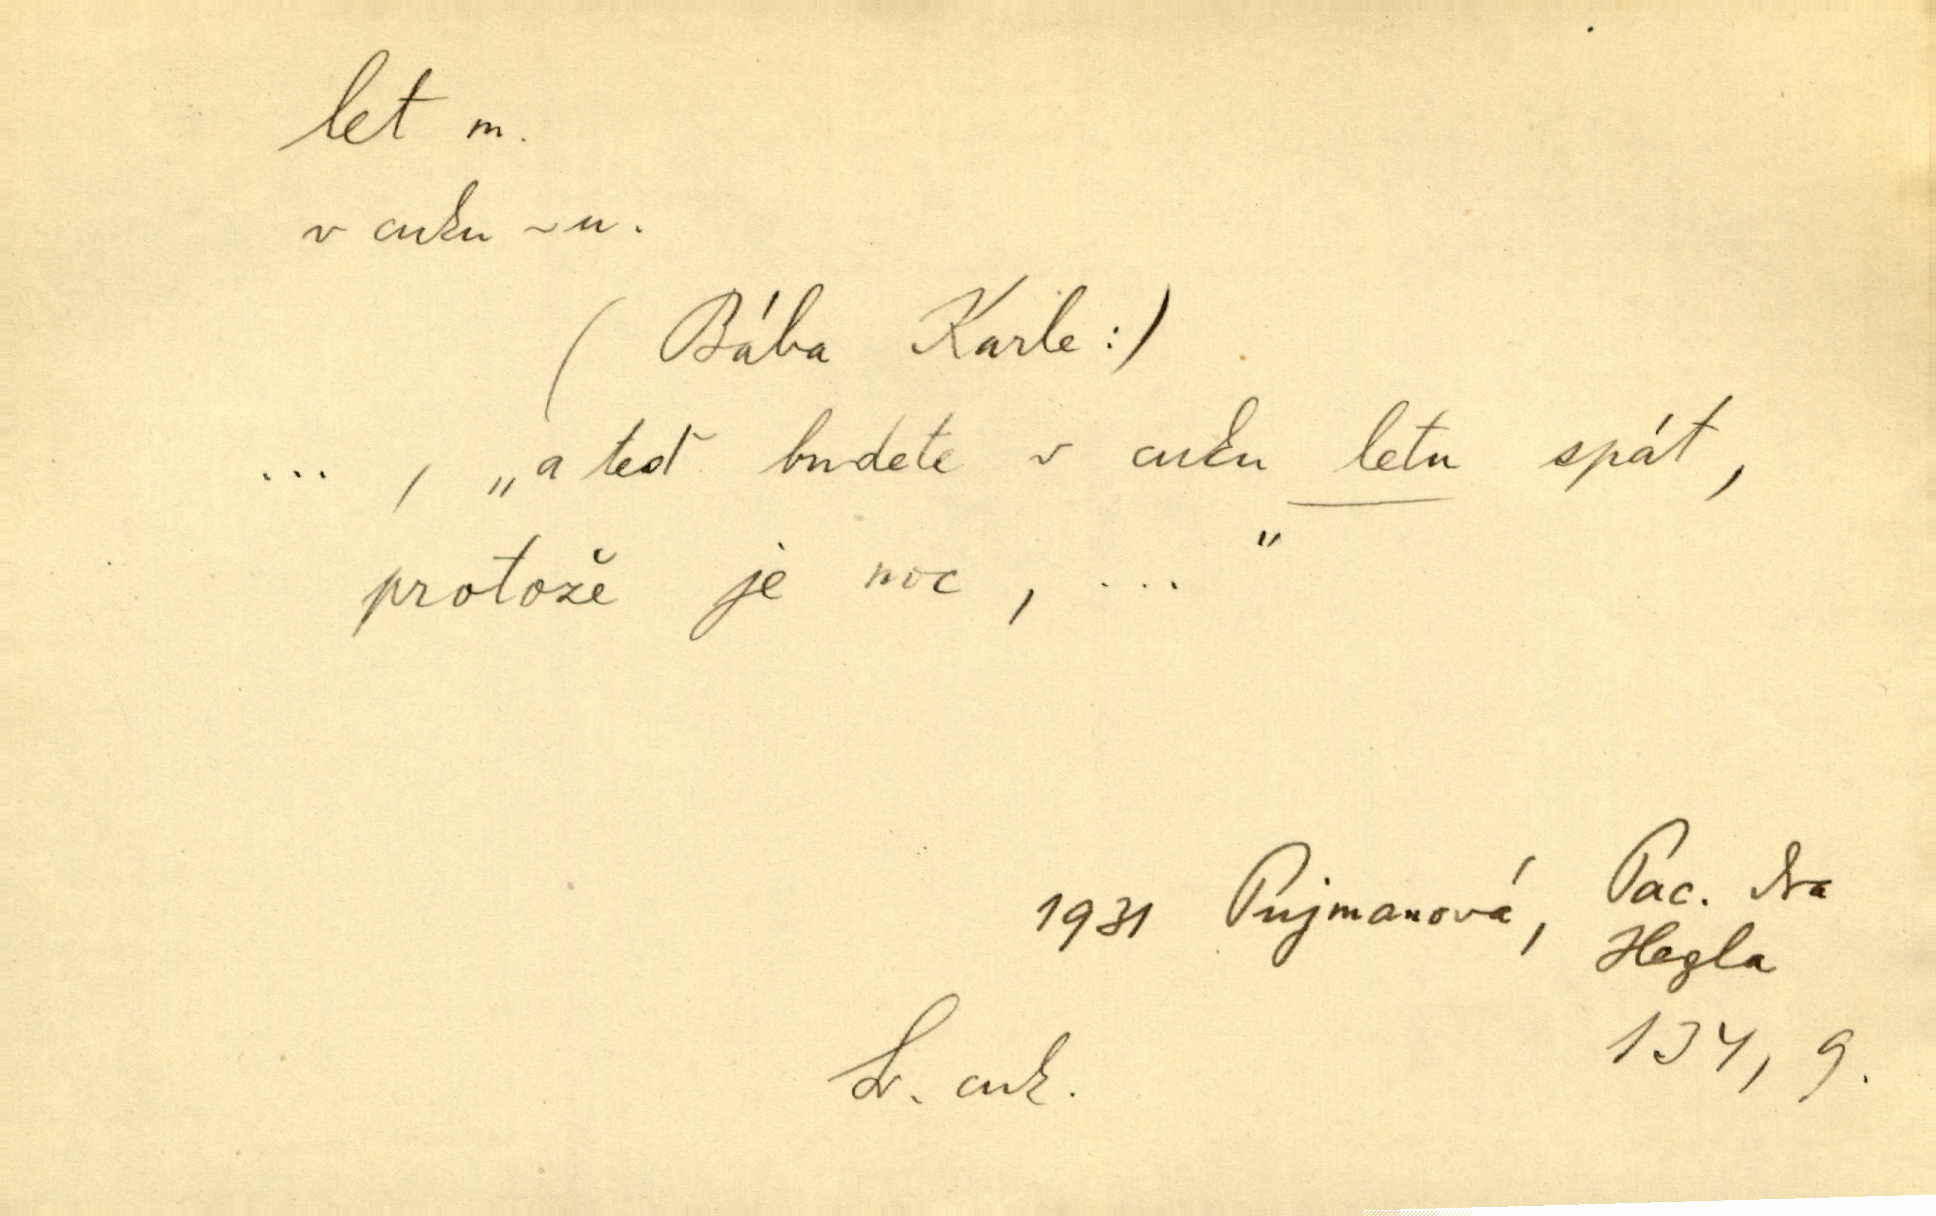 let m.
v cuku ~u.
( Bába Karle :)
... , „a teď budete v cuku letu spát,
protože je noc, ... "
1931 Pujmanová, Pac. dra
Hegla
134, 9.
cuk.